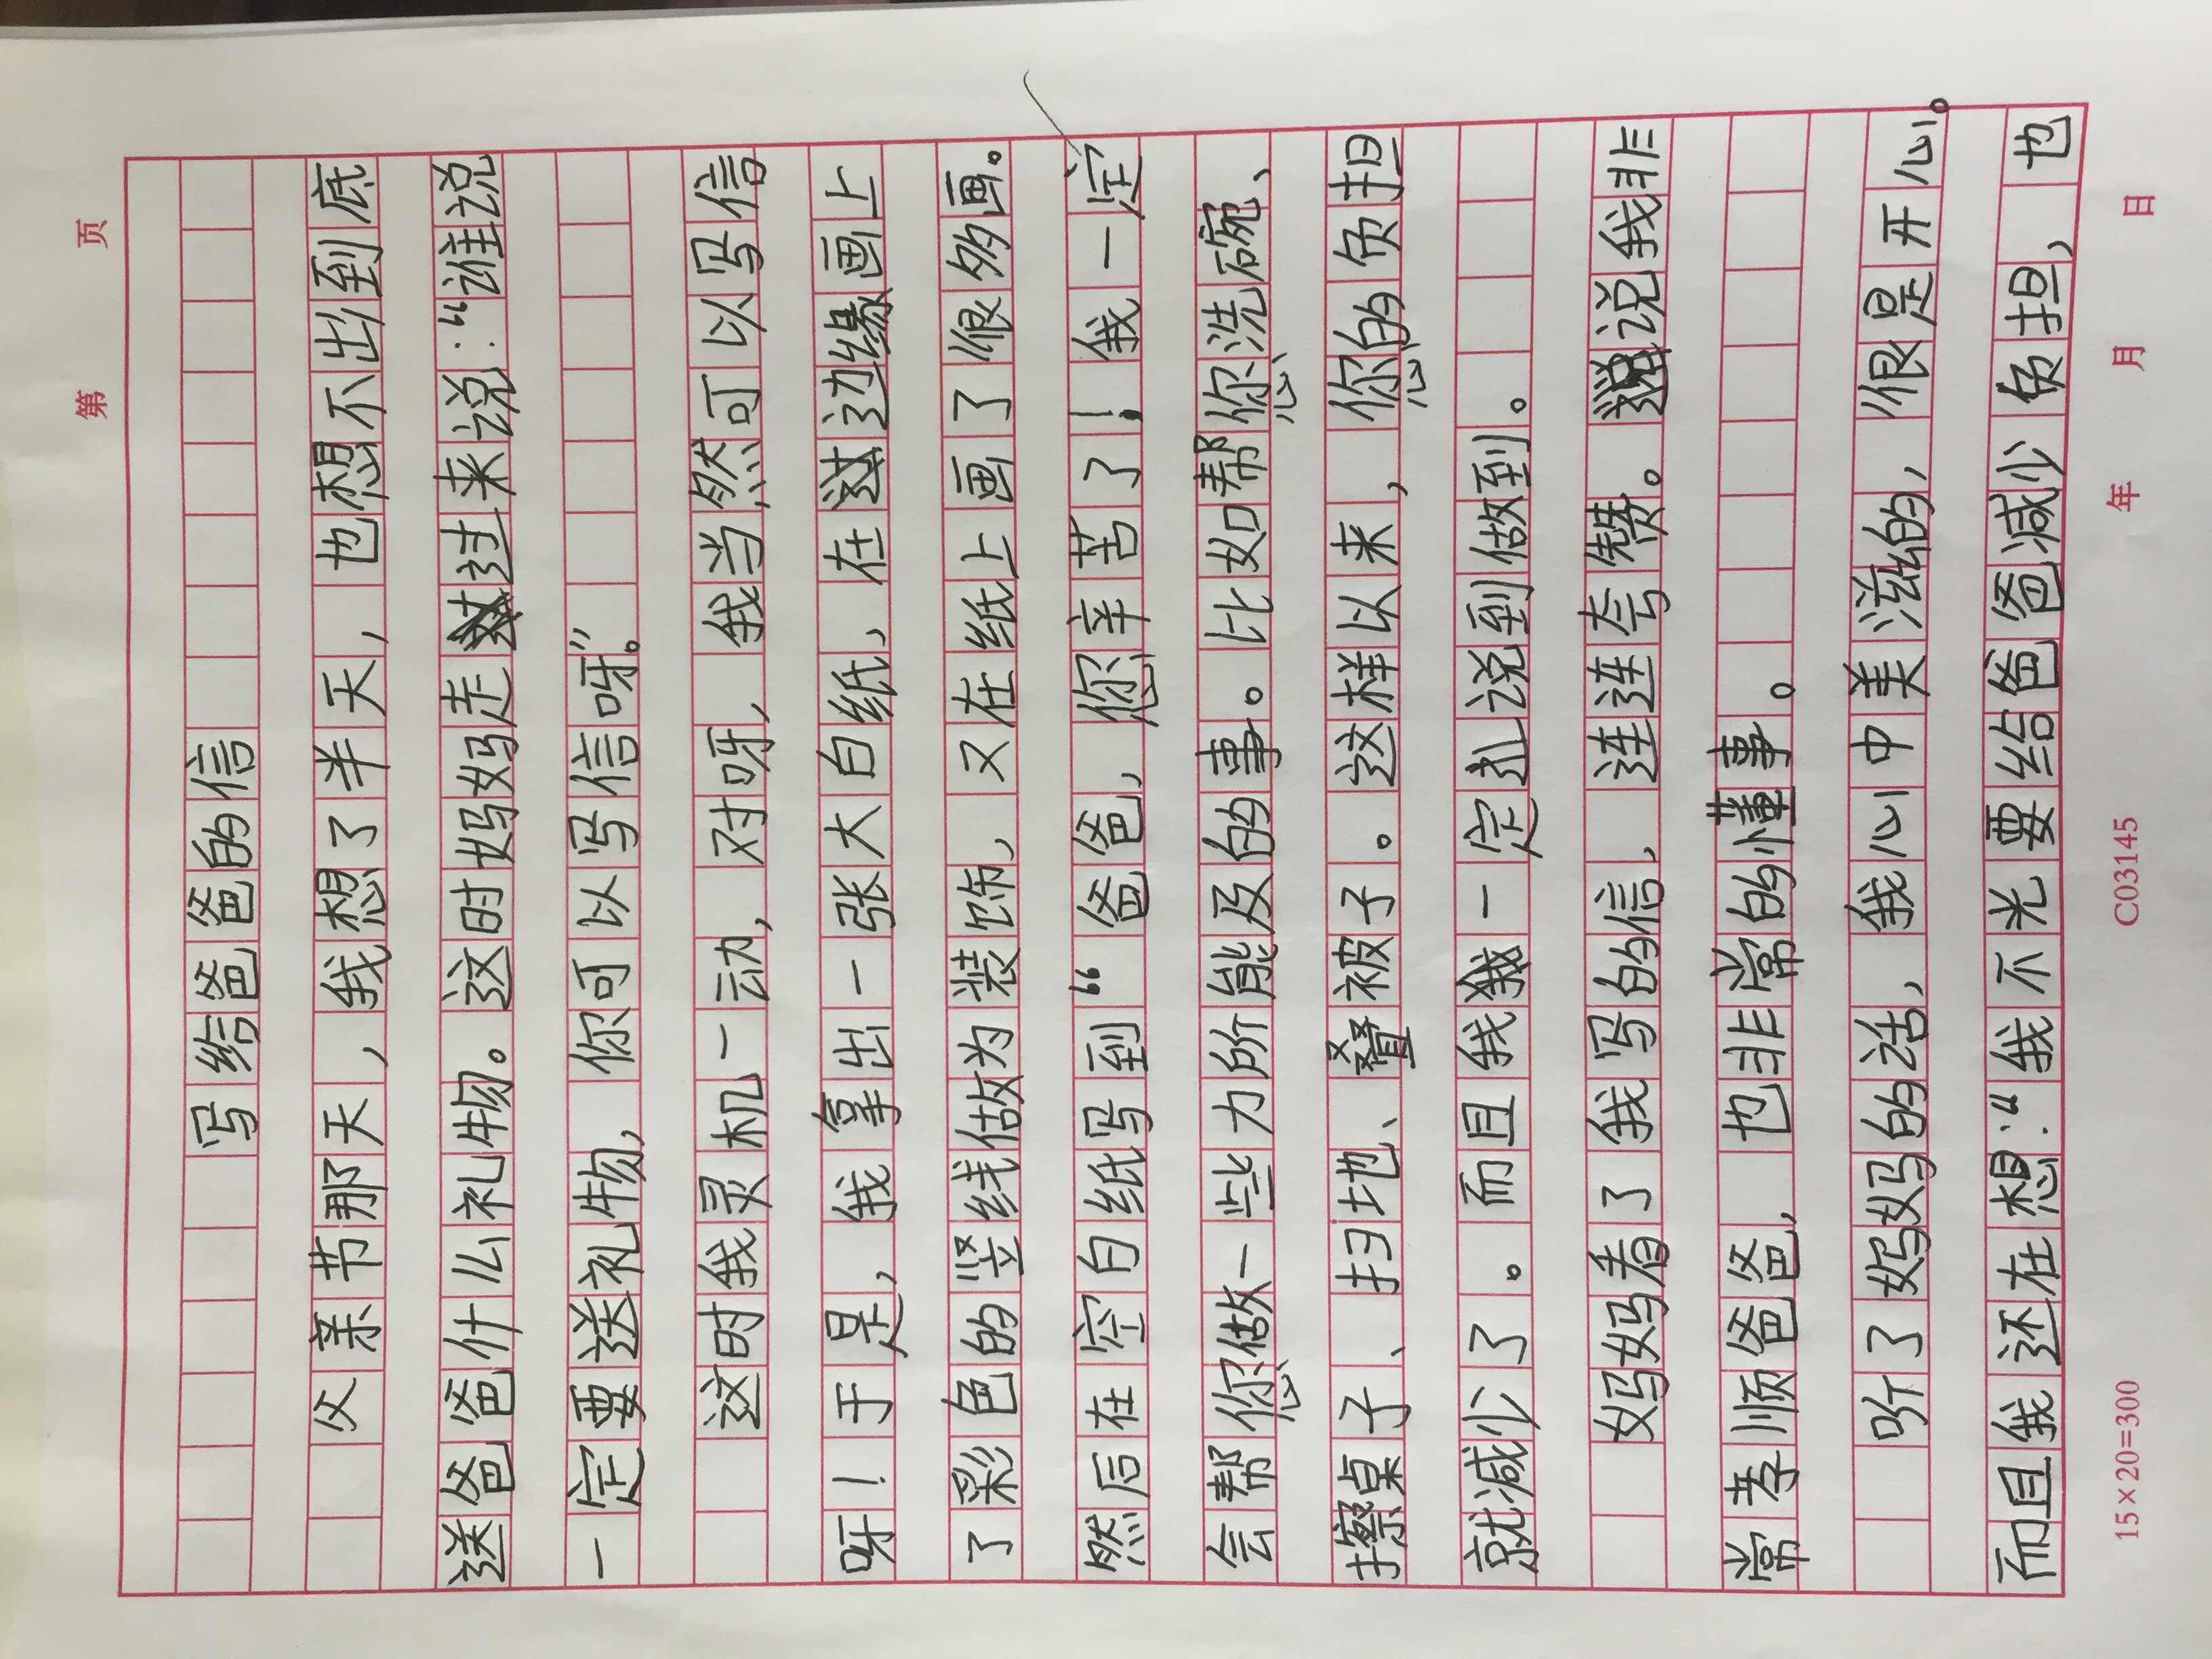 第 页
写给爸爸的信
父亲节那天，我想了半天，也想不出到底
送爸爸什么礼物。这时妈妈走过来说：“谁说
一定要送礼物，你可以写信呀。”
这时我灵机一动，对呀，我当然可以写信
呀！于是，我拿出一张大白纸，在边缘画上
了彩色的竖线做为装饰，又在纸上画了很多画。
然后在空白纸写到“爸爸，您辛苦了！我一定
会帮您做一些力所能及的事。比如帮您洗碗、
擦桌子、扫地、叠被子。这样以来，您的负担
就减少了。而且我一定说到做到。
妈妈看了我写的信，连连夸赞。说我非
常孝顺爸爸，也非常的懂事。
听了妈妈的话，我心中美滋的，很是开心。
而且我还在想：“我不光要给爸爸减少负担，也
15×20=300 C03145 年 月 日